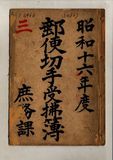 昭和十六年度
郵便切手受払簿
庶務課
三